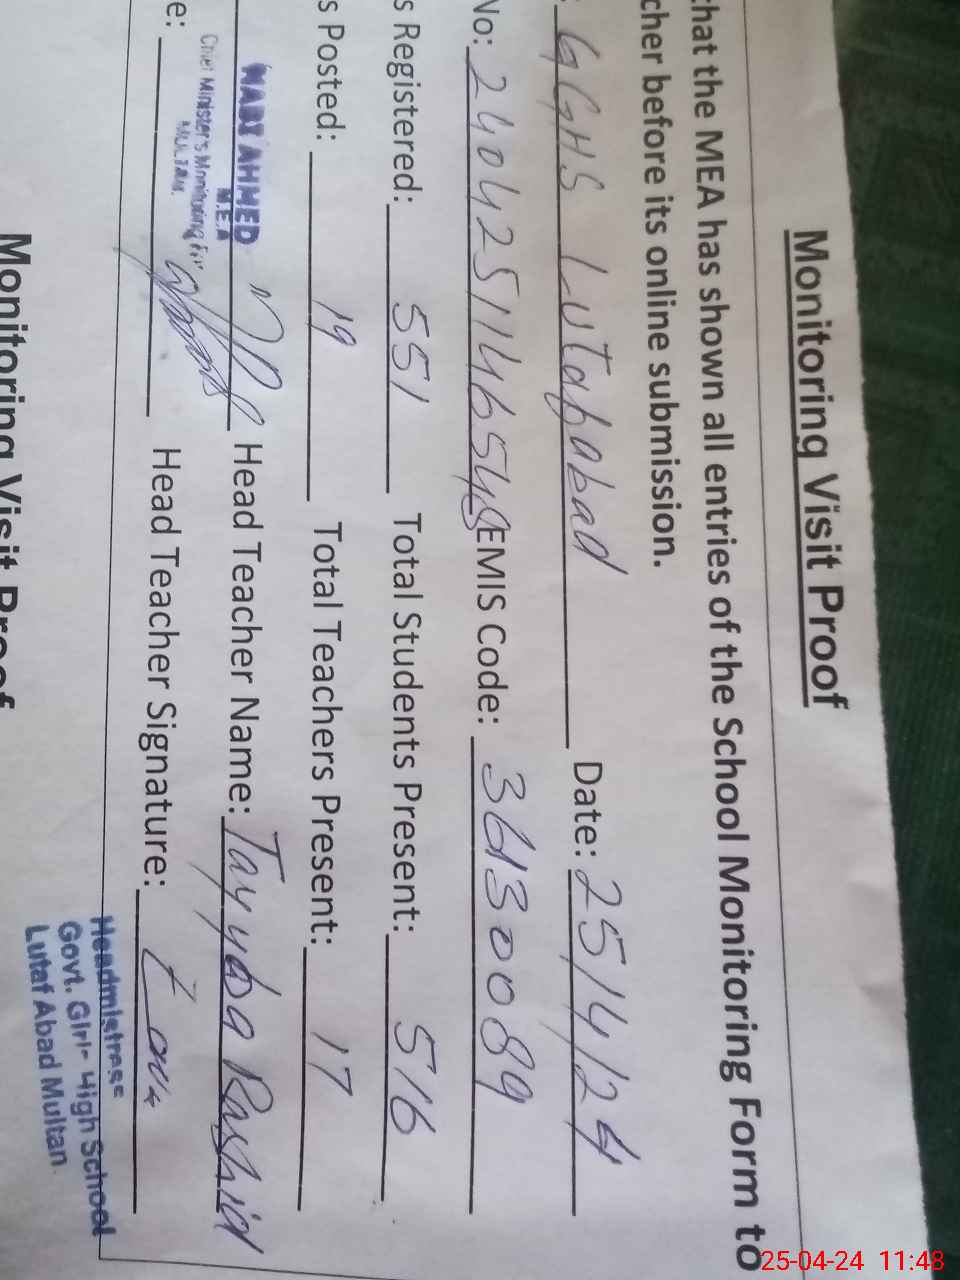 Monitoring Visit Proof
that the MEA has shown all entries of the School Monitoring Form to
cher before its online submission.
: GGHS Lutafabad Date: 25/4/24
No: 24042511465448 EMIS Code: 36130089
s Registered: 551 Total Students Present: 516
s Posted: 19 Total Teachers Present: 17
NABI AHMED
M.E.A
Chief Minister's Monitoring
MULTAN.
Head Teacher Name: Tayyba Rashid
e: Head Teacher Signature:
Headmistress
Govt. Girl- High School
Lutaf Abad Multan.
Monitoring Visit Proof
25-04-24 11:48